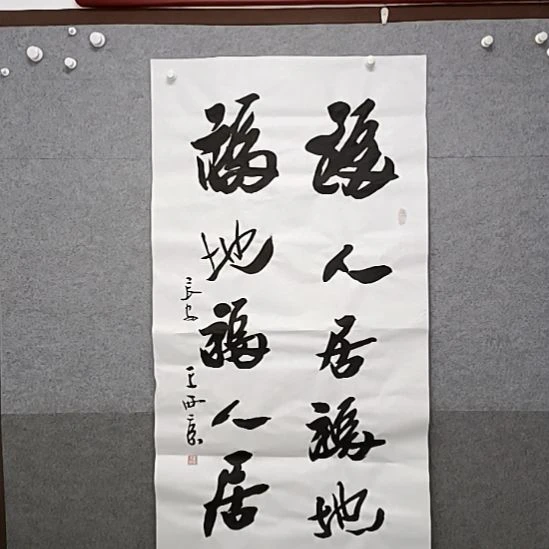 福人居福地
福地福人居
長安